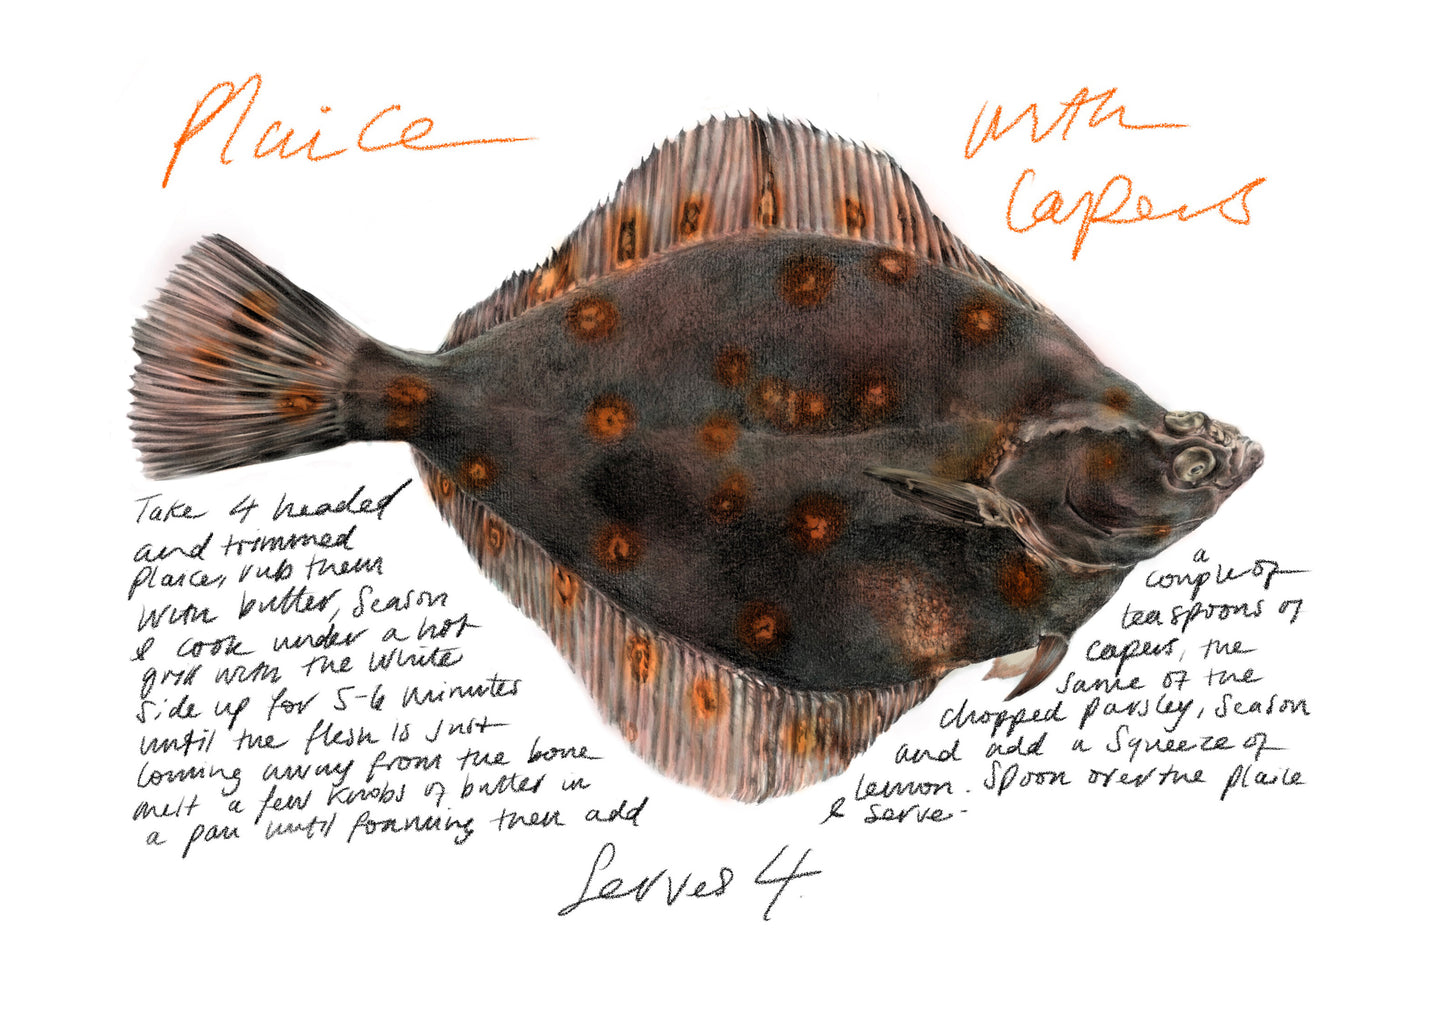 Plaice
with
Capers
Take 4 headed
and trimmed
plaice, rub them
with butter, Season
& cook under a hot
grill with the white
side up for 5-6 minutes
until the flesh is just
coming away from the bone
melt a few knobs of butter in
a pan until foaming then add
a
couple of
teaspoons of
capers, the
same of the
chopped parsley, Season
and add a Squeeze of
lemon. Spoon over the plaice
& Serve-
Serves 4